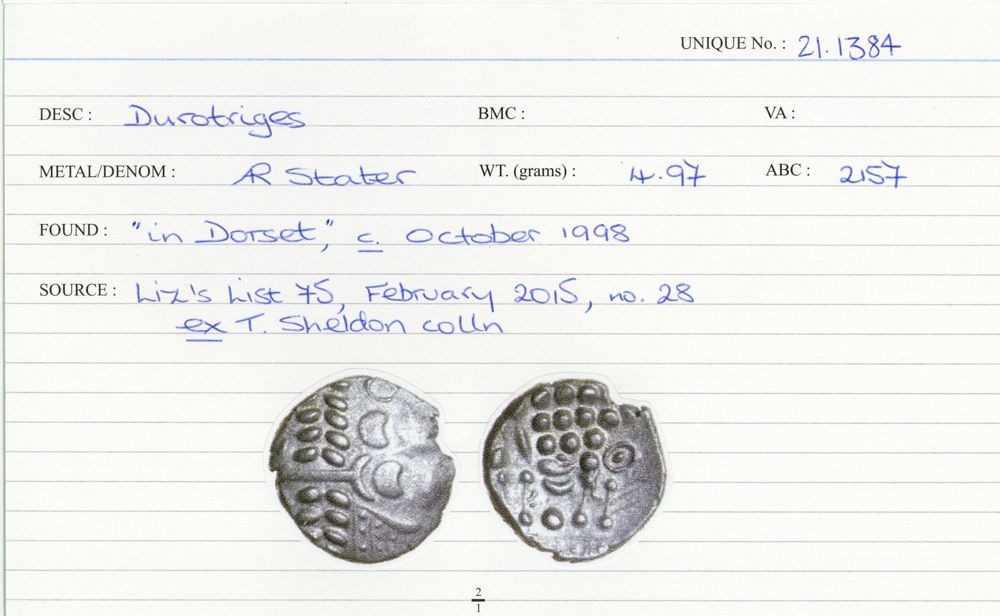 UNIQUE No. : 21.1384
DESC : Durotriges BMC : VA :
METAL/DENOM : AR Stater WT. (grams) : 4.97 ABC : 2157
FOUND : "in Dorset," c. October 1998
SOURCE : Liz's List 75, February 2015, no. 28
ex T. Sheldon colln
2
1